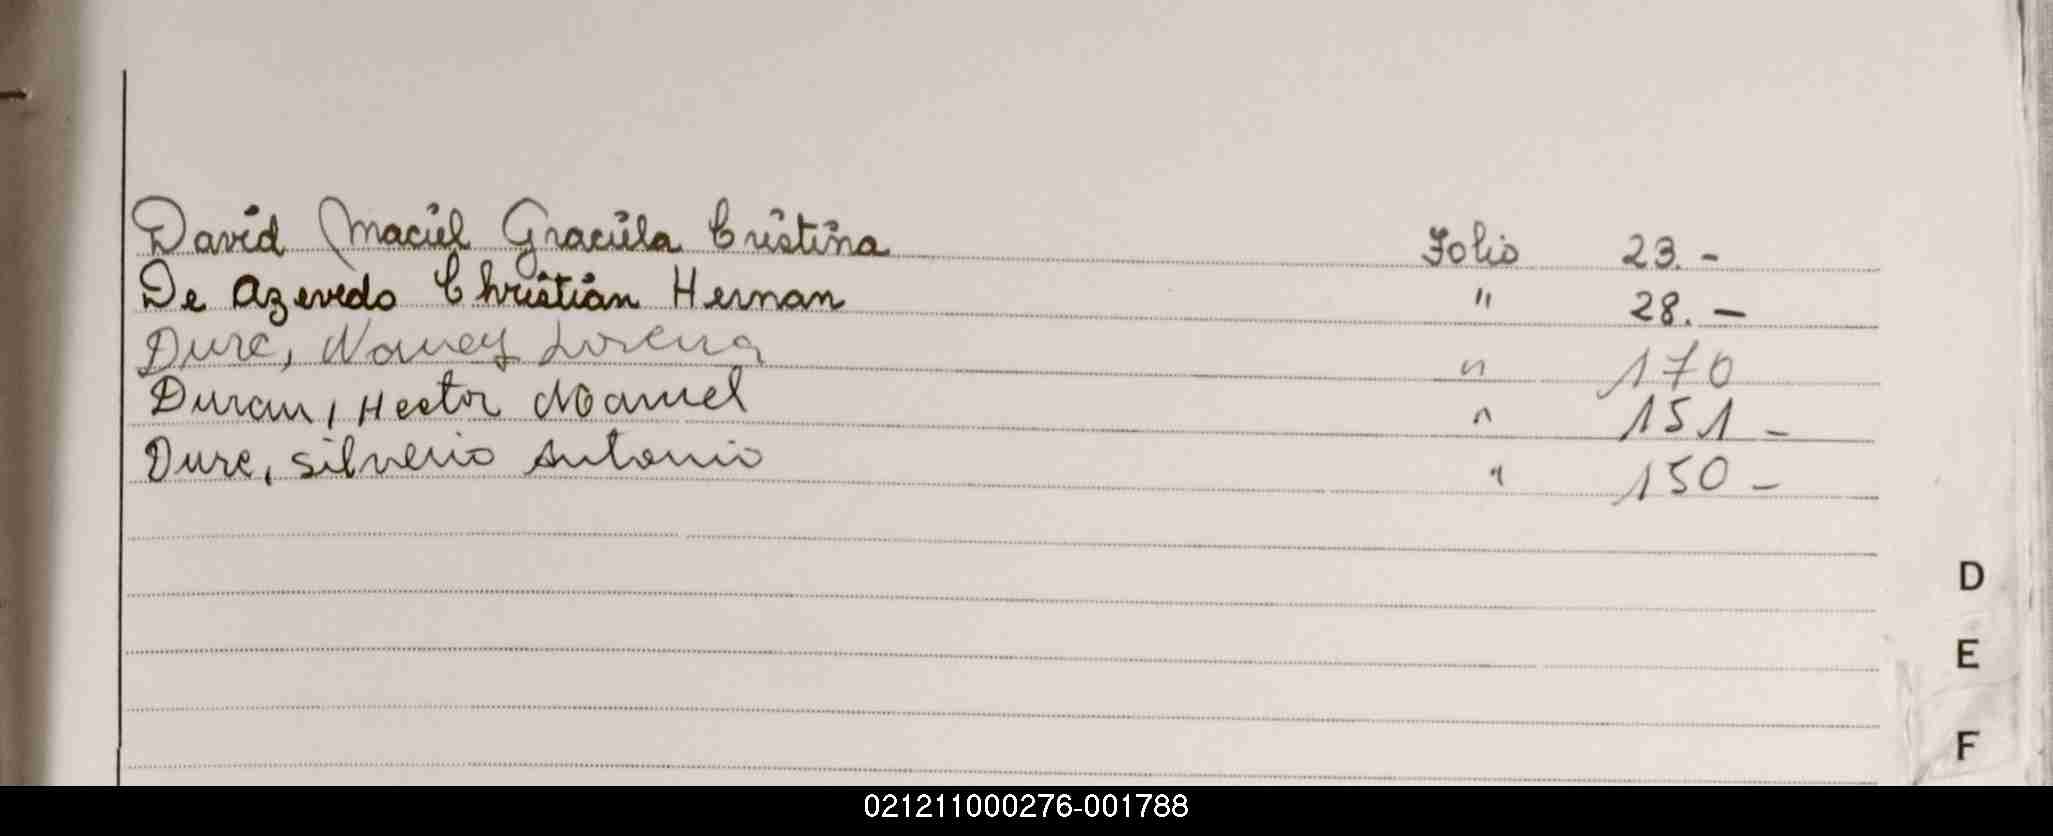 David Maciel Graciela Cristina Folio 23.-
De Azevedo Christian Hernan " 28.-
Dure, Nancy Lorena " 170
Duran, Hector Manuel " 151-
Dure, Silverio Antonio " 150-
D
E
F
021211000276-001788